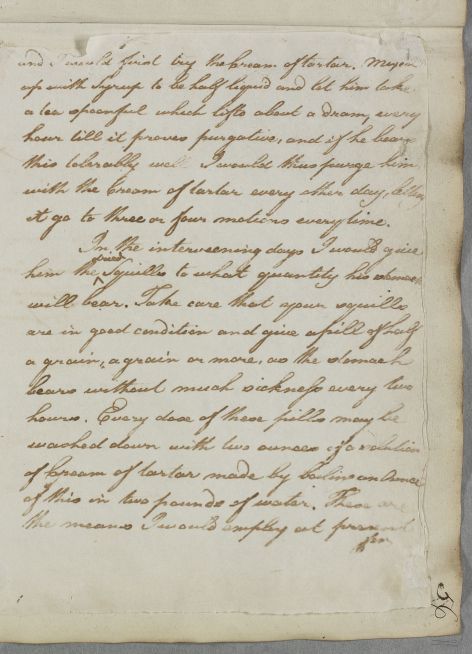 and I would first try the Cream of tartar. Mix you
up with Syrup to be half liquid and let him take
a tea spoonful which lifts about a dram, every
hour till it proves purgative, and if he bears
this tolerably well I would thus purge him
with the Cream of tartar every other day, & let
it go to three or four motions every time.
In the interveening days I would give
dried
him the ^ Squills to what quantity his stomach
will bear. Take care that your squills
are in good condition and give a pill of half
a grain, a grain or more, as the stomach
bears without much sickness every two
hours. Every dose of these pills may be
washed down with two ounces of a solution
of Cream of tartar made by boiling an Ounce
of this in two pounds of water. These are
the means I would employ at present
for